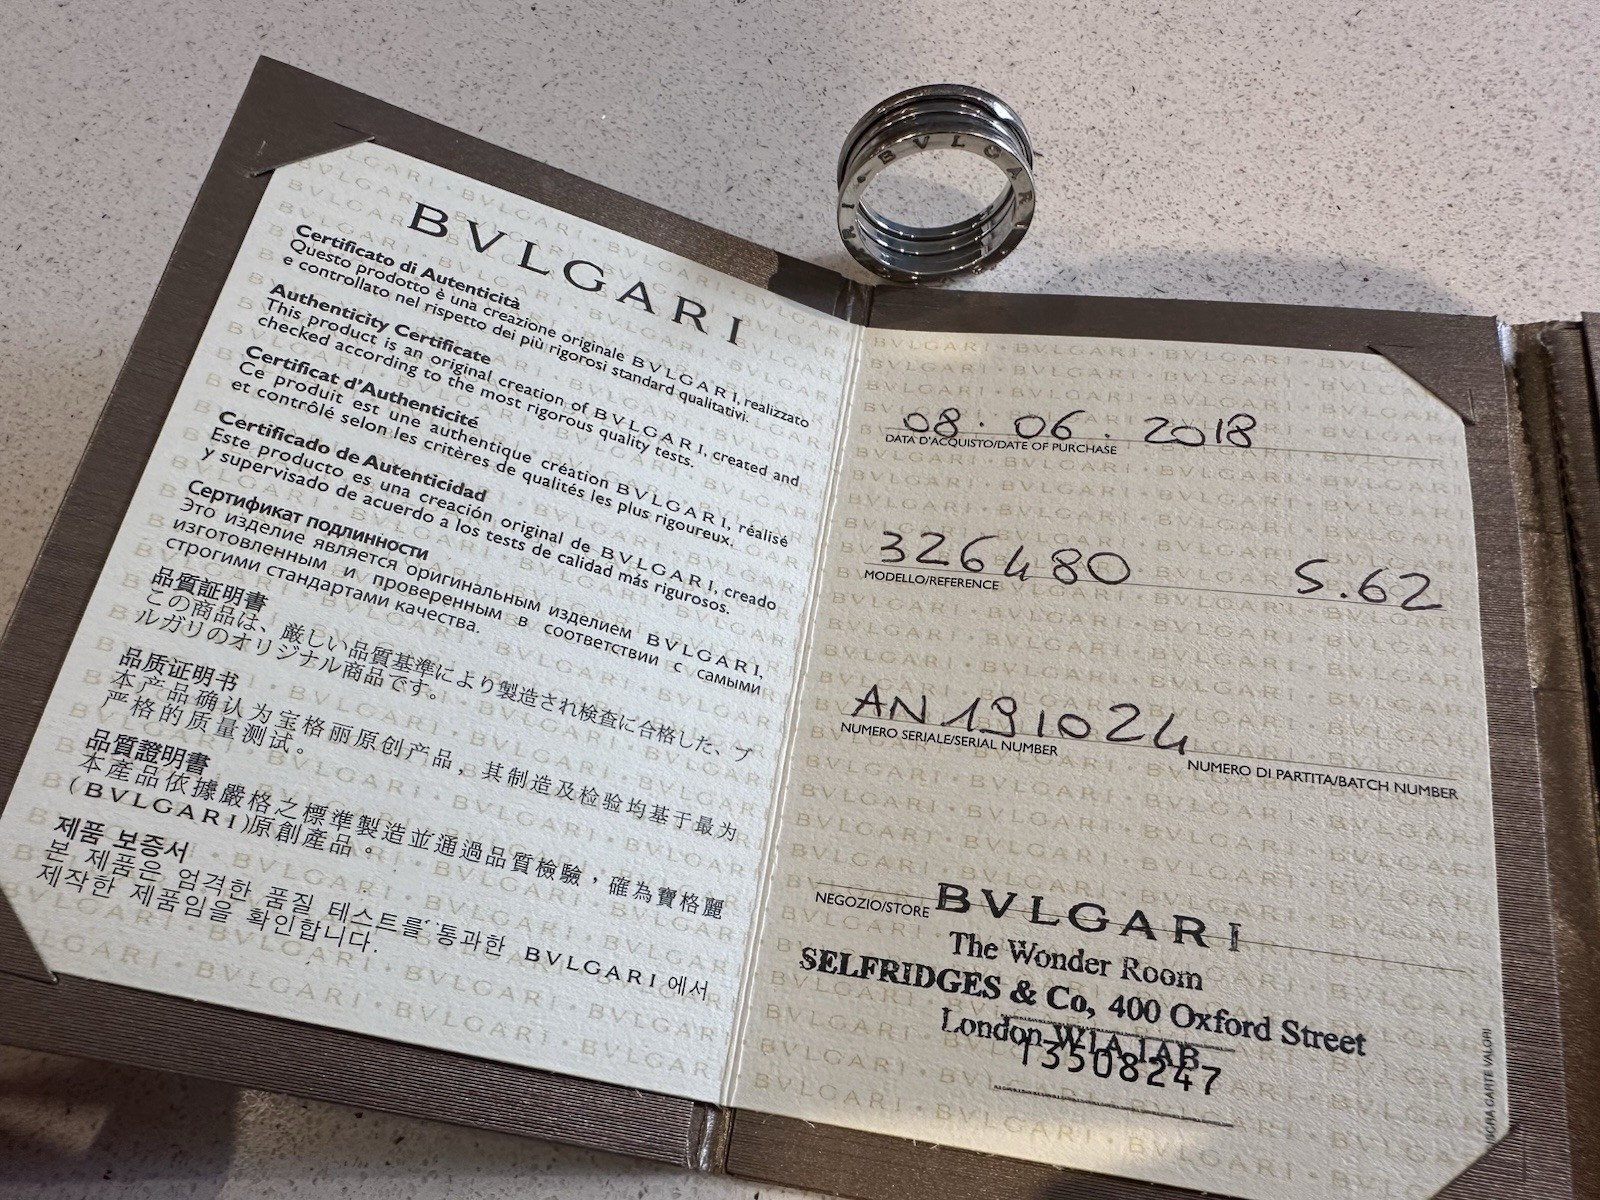 BVLGARI
Certificato di Autenticità
Questo prodotto è una creazione originale BVLGARI, realizzato
e controllato nel rispetto dei più rigorosi standard qualitativi.
Authenticity Certificate
This product is an original creation of BVLGARI, created and
checked according to the most rigorous quality tests.
Certificat d'Authenticité
Ce produit est une authentique création BVLGARI, réalisé
et contrôlé selon les critères de qualités les plus rigoureux.
Certificado de Autenticidad
Este producto es una creación original de BVLGARI, creado
y supervisado de acuerdo a los tests de calidad más rigurosos.
Сертификат подлинности
Это изделие является оригинальным изделием BVLGARI,
изготовленным и проверенным в соответствии с самыми
строгими стандартами качества.
品質証明書
この商品は、厳しい品質基準により製造され検査に合格した、ブ
ルガリのオリジナル商品です。
品质证明书
本产品确认为宝格丽原创产品，其制造及检验均基于最为
严格的质量测试。
品質證明書
本產品依據嚴格之標準製造並通過品質檢驗，確為寶格麗
(BVLGARI)原創產品。
제품 보증서
본 제품은 엄격한 품질 테스트를 통과한 BVLGARI 에서
제작한 제품임을 확인합니다.
BVLGARI
08.06.2018
DATA D'ACQUISTO/DATE OF PURCHASE
326480 S.62
MODELLO/REFERENCE
AN191024
NUMERO SERIALE/SERIAL NUMBER NUMERO DI PARTITA/BATCH NUMBER
NEGOZIO/STORE BVLGARI
The Wonder Room
SELFRIDGES & Co, 400 Oxford Street
London W1A 1AB
13508247
CARTE VALORI